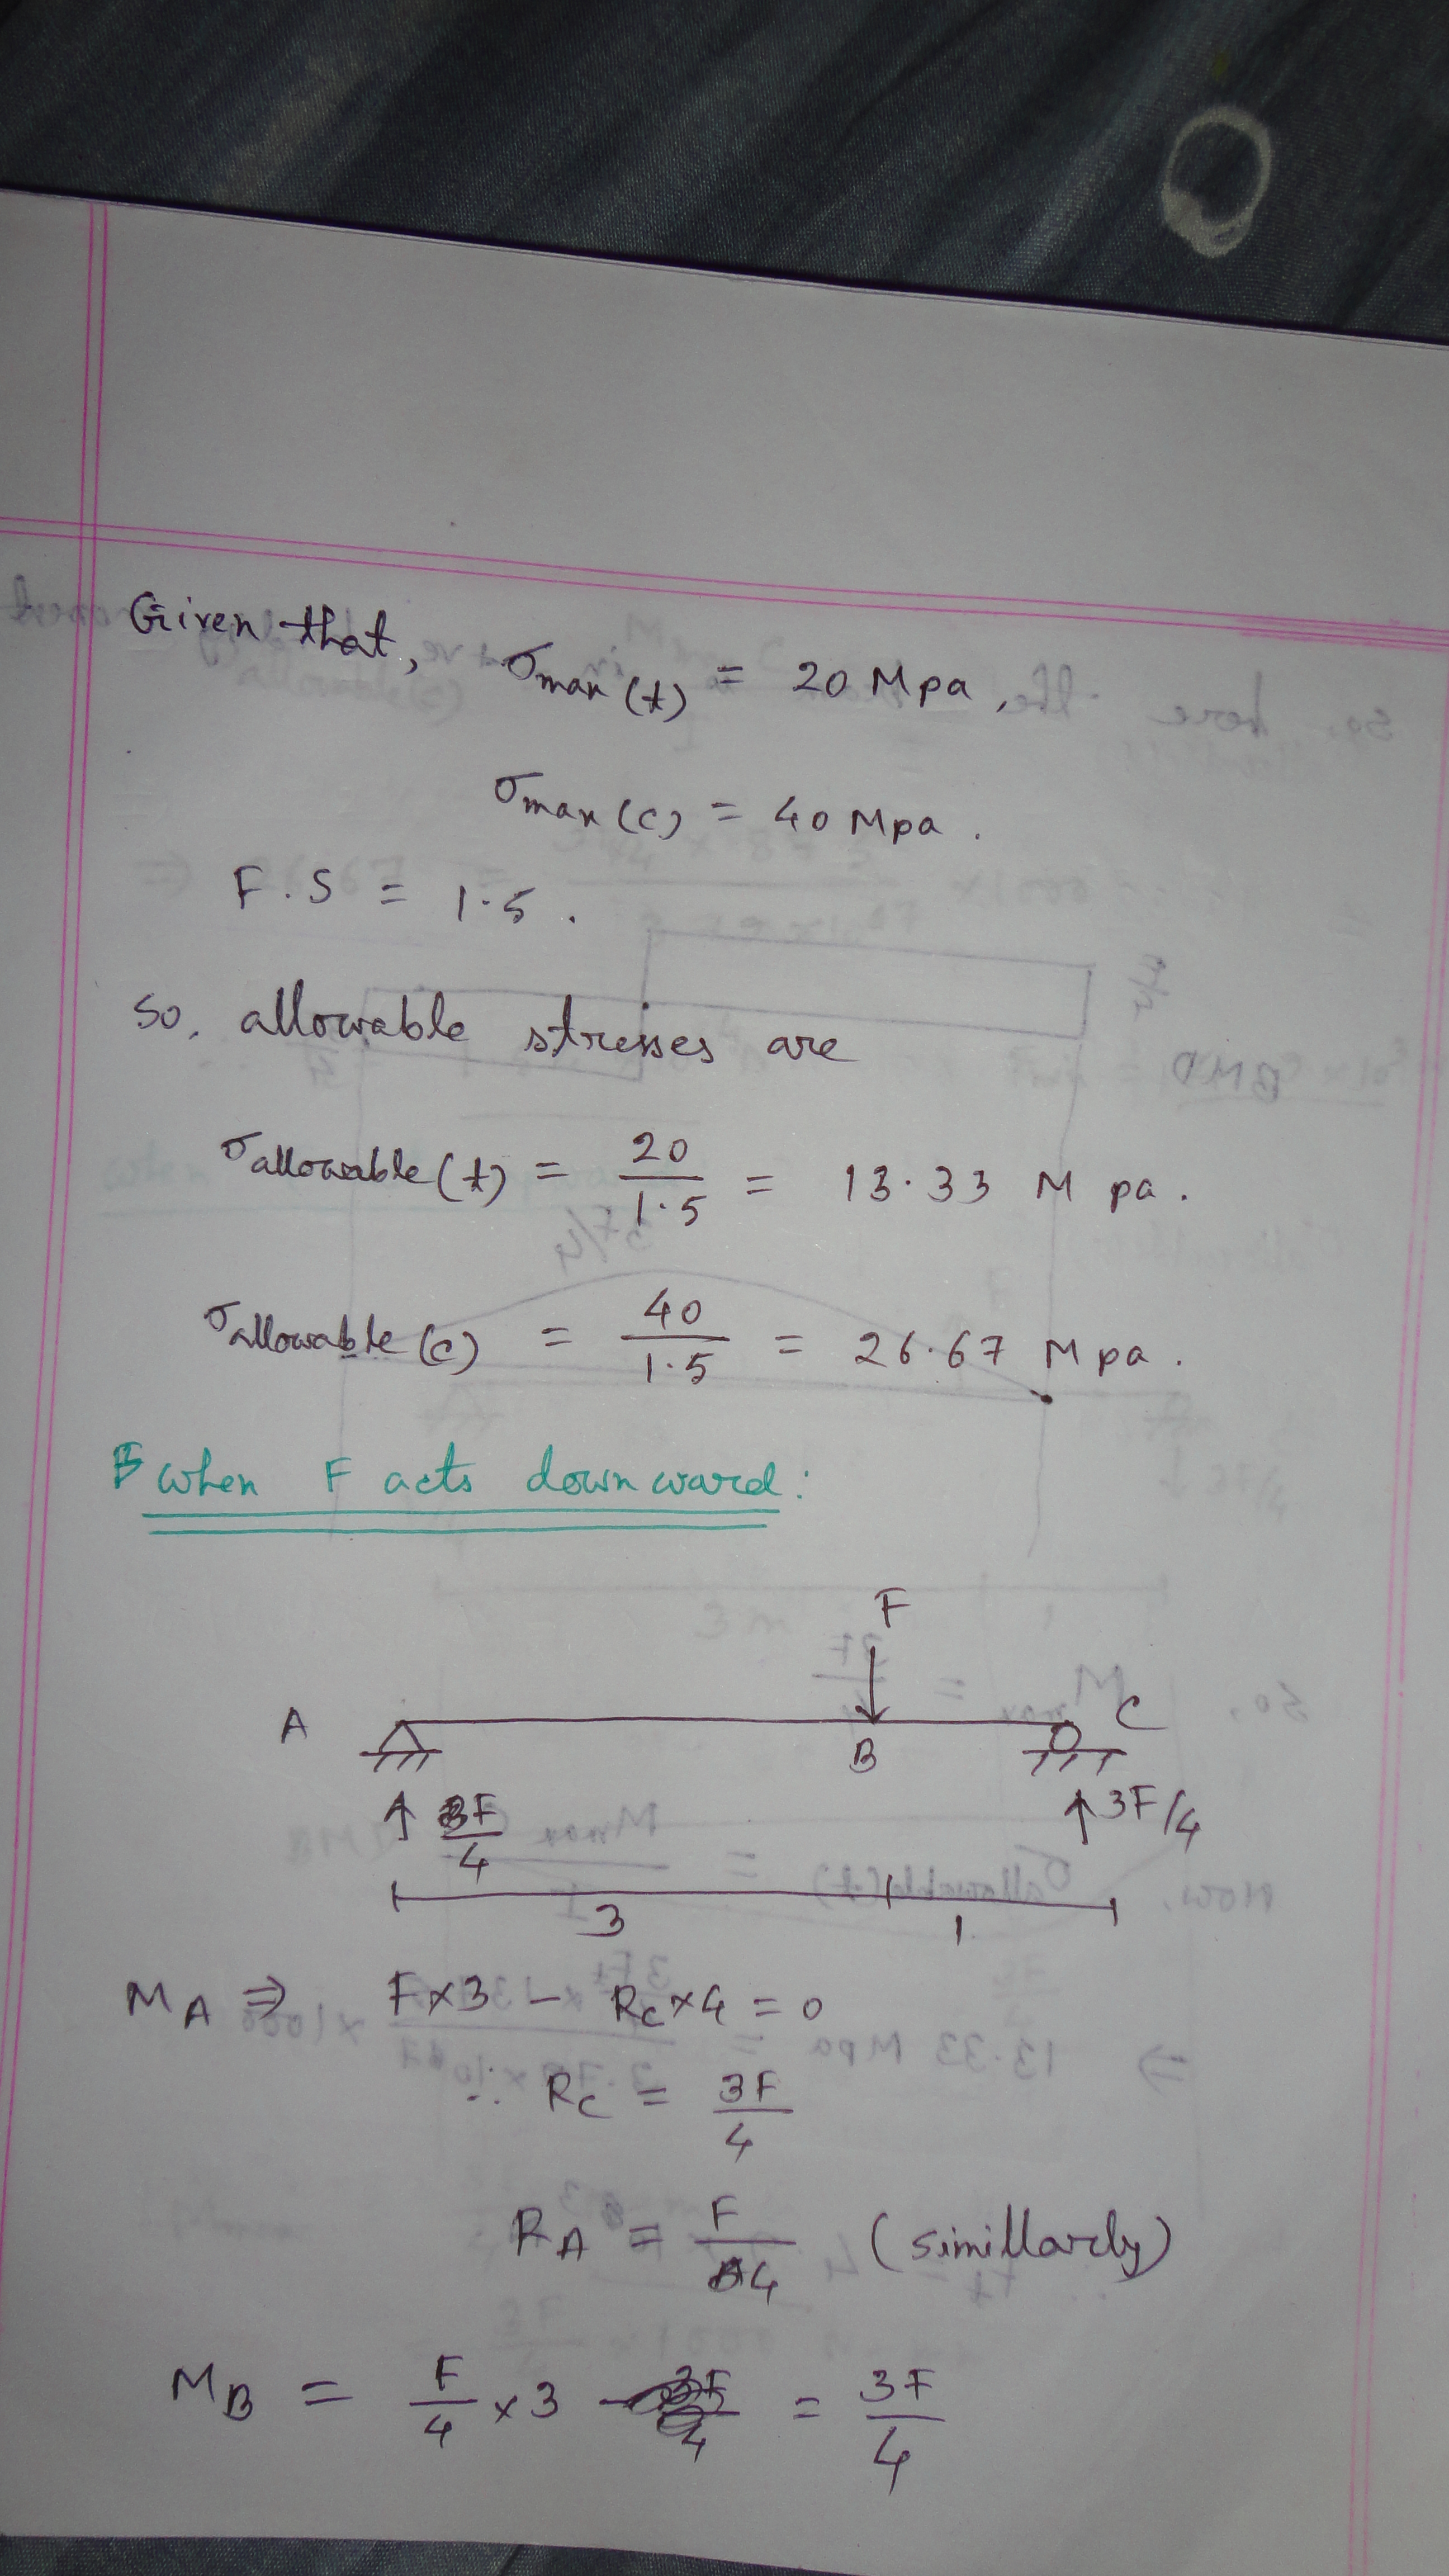 Given that, σmax (t) = 20 Mpa,
σmax (c) = 40 Mpa.
F.S = 1.5.
So, allowable stresses are
σallowable (t) = 20/1.5 = 13.33 Mpa.
σallowable (c) = 40/1.5 = 26.67 Mpa.
when F acts downward:
F
A
B
C
↑ F/4
↑ 3F/4
3
1
MA ⇒ F×3 - RC×4 = 0
∴ RC = 3F/4
RA = F/4 (simillarly)
MB = F/4 ×3 = 3F/4